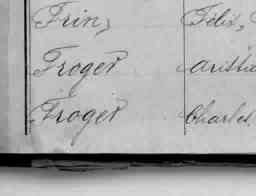 Frin, Félix,
Froger Aristi
Froger Charles